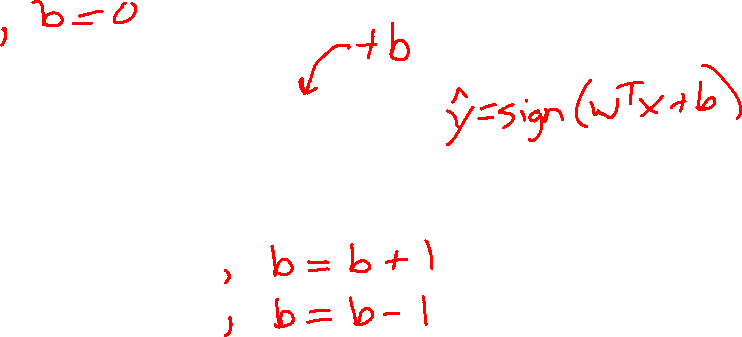 , b=0
+b
ŷ=sign(wᵀx+b)
, b=b+1
, b=b-1